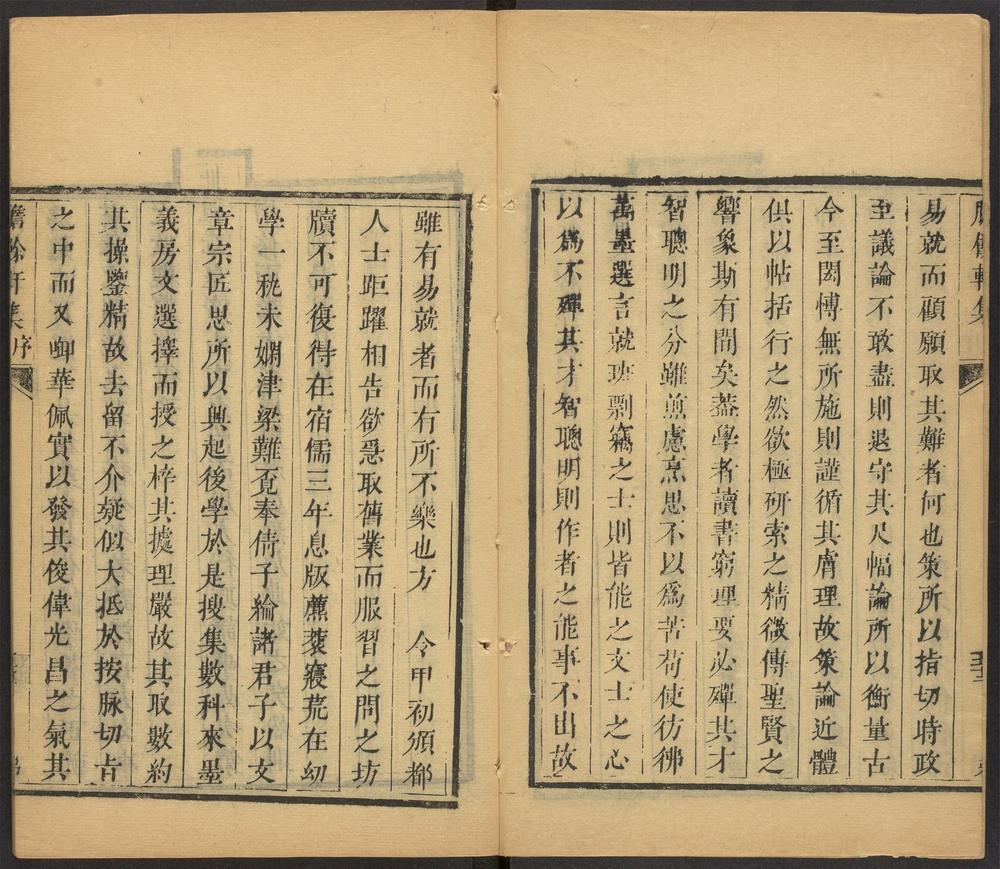 易就而顧願取其難者何也策所以指切時政
至議論不敢盡則退守其尺幅論所以衡量古
今至閎博無所施則謹循其膚理故策論近體
俱以帖括行之然欲極研索之精微傳聖賢之
響象斯有間矣葢學者讀書窮理要必殫其才
智聰明之分雖煎慮烹思不以爲苦苟使彷彿
萬墨選言就班剽竊之士則皆能之文士之心
以爲不殫其才智聰明則作者之能事不出故
雖有易就者而有所不樂也方 令甲初頒都
人士距躍相告欲亟取舊業而服習之問之坊
牘不可復得在宿儒三年息版藨蔉寢荒在幼
學一秇未嫻津梁難覔奉倩子綸諸君子以文
章宗匠思所以興起後學於是搜集數科來墨
義房文選擇而授之梓其據理嚴故其取數約
其操鑒精故去留不介疑似大抵於按脉切占
之中而又啣華佩實以發其俊偉光昌之氣其
集序